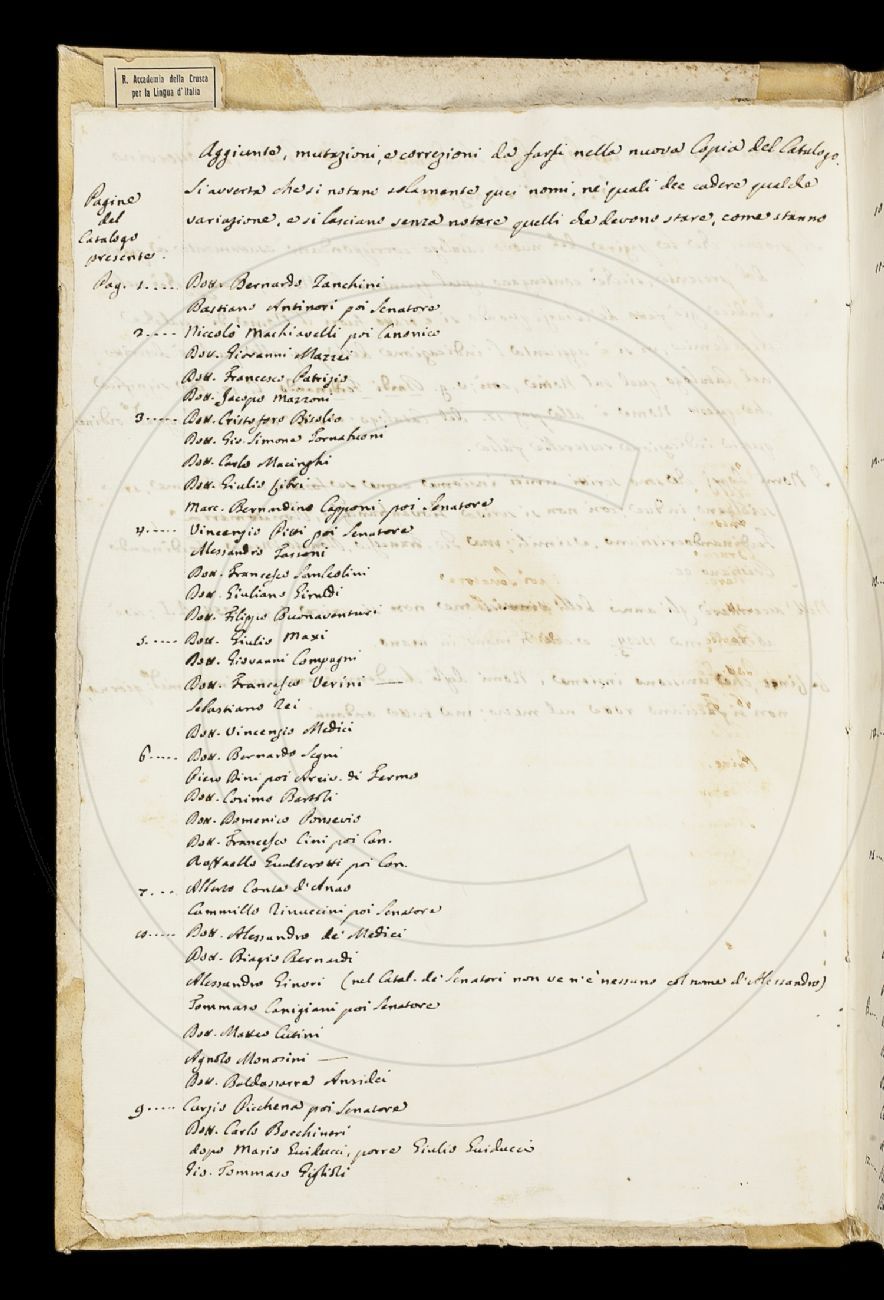 R. Accademia della Crusca
per la Lingua d'Italia
Aggiunte, mutazioni, e correzioni da farsi nella nuova Copia del Catalogo.
Si avverta che si notano solamente quei nomi, ne' quali dee cadere qualche
variazione, e si lasciano senza notare quelli che devono stare, come stanno
Pagine
del
Catalogo
presente.
Pag. 1..... Dott. Bernardo Zanchini
Bastiano Antinori poi Senatore
2..... Niccolò Machiavelli poi Canonico
Dott. Giovanni Mazzei
Dott. Francesco Patrizio
Dott. Jacopo Mazzoni
3..... Dott. Cristoforo
Dott. Gio. Simone Tornabuoni
Dott. Carlo Macinghi
Dott. Giulio Libri
Marc. Bernardino Capponi poi Senatore
4..... Vincenzio Pitti poi Senatore
Alessandro Tassoni
Dott. Francesco Sanleolini
Dott. Giuliano Giraldi
Dott. Filippo Buonaventuri
5..... Dott. Giulio Mazi
Dott. Giovanni Compagni
Dott. Francesco Verini —
Sebastiano
Dott. Vincenzio Medici
6..... Dott. Bernardo Segni
Piero Dini poi Arciv. di Fermo
Dott. Cosimo Bartoli
Dott. Domenico Ponsevio
Dott. Francesco Cini poi Can.
Raffaello Gualterotti poi Can.
7.... Alberto Conte d'
Cammillo Rinuccini poi Senatore
8..... Dott. Alessandro de' Medici
Dott. Biagio Bernardi
Alessandro Ginori (nel Catal. de' Senatori non ve n'è nessuno col nome d'Alessandro)
Tommaso Canigiani poi Senatore
Dott. Matteo Cutini
Agnolo Monosini —
Dott. Baldassarre Ansidei
9..... Curzio Picchena poi Senatore
Dott. Carlo Bocchineri
dopo Mario Guiducci, porre Giulio Guiducci
Gio. Tommaso